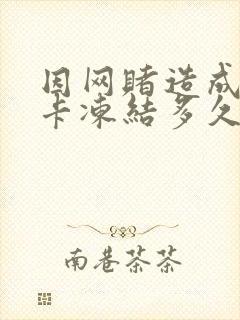 因网赌造成
卡凍結多久
南巷茶茶